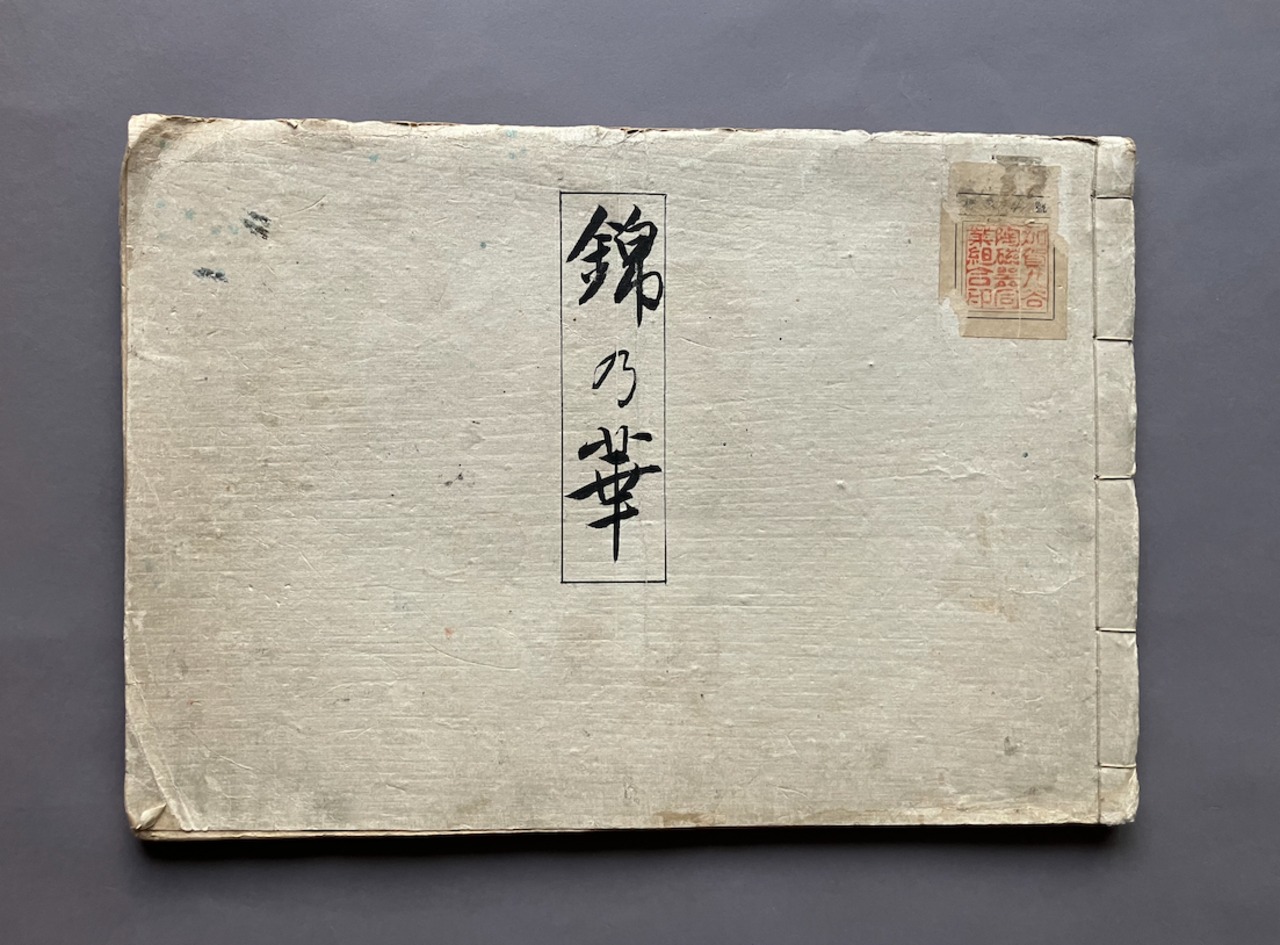 錦乃華
加賀九谷
陶磁器同
業組合印